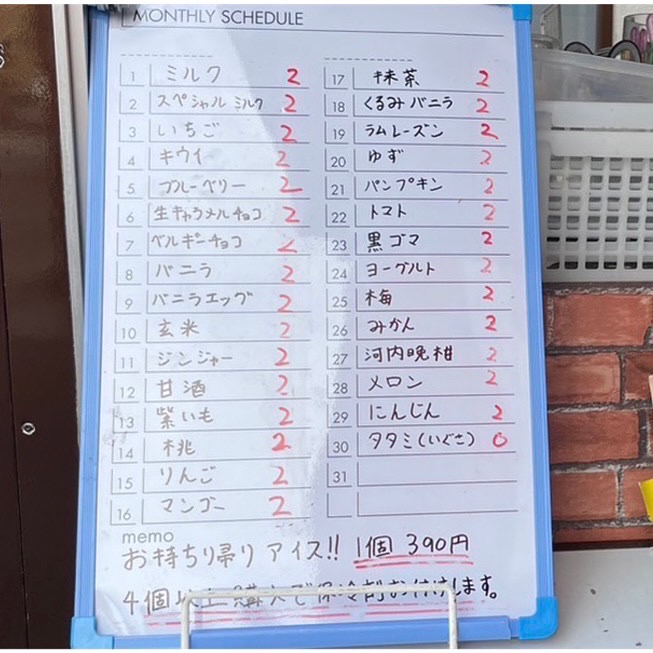 MONTHLY SCHEDULE
1 ミルク 2
2 スペシャル ミルク 2
3 いちご 2
4 キウイ 2
5 ブルーベリー 2
6 生キャラメルチョコ 2
7 ベルギーチョコ 2
8 バニラ 2
9 バニラエッグ 2
10 玄米 2
11 ジンジャー 2
12 甘酒 2
13 紫いも 2
14 桃 2
15 りんご 2
16 マンゴー 2
17 抹茶 2
18 くるみバニラ 2
19 ラムレーズン 2
20 ゆず 2
21 パンプキン 2
22 トマト 2
23 黒ゴマ 2
24 ヨーグルト 2
25 梅 2
26 みかん 2
27 河内晩柑 2
28 メロン 2
29 にんじん 2
30 タタミ(いぐさ) 0
31
memo
お持ち帰りアイス!! 1個 390円
4個以上購入で保冷剤お付けします。